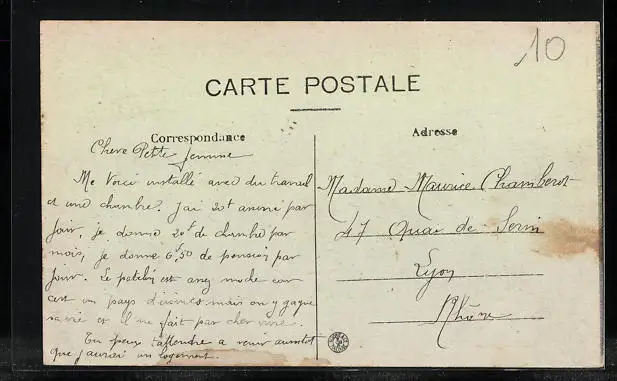 10
CARTE POSTALE
Correspondance
Adresse
Chere Petite femme
Me Voici installé avec du travail
et une chambre. J'ai 20f assuré par
jour, je donne 20f de chambre par
mois, je donne 6f,50 de pension par
jour. Le patelin est assez moche car
c'est un pays d'usines mais on y gagne
sa vie et il ne fait pas cher vivre.
Tu peux t'attendre a venir aussitot
que j'aurai un logement.
Madame Maurice Chamberot
47 Quai de Serin
Lyon
Rhône